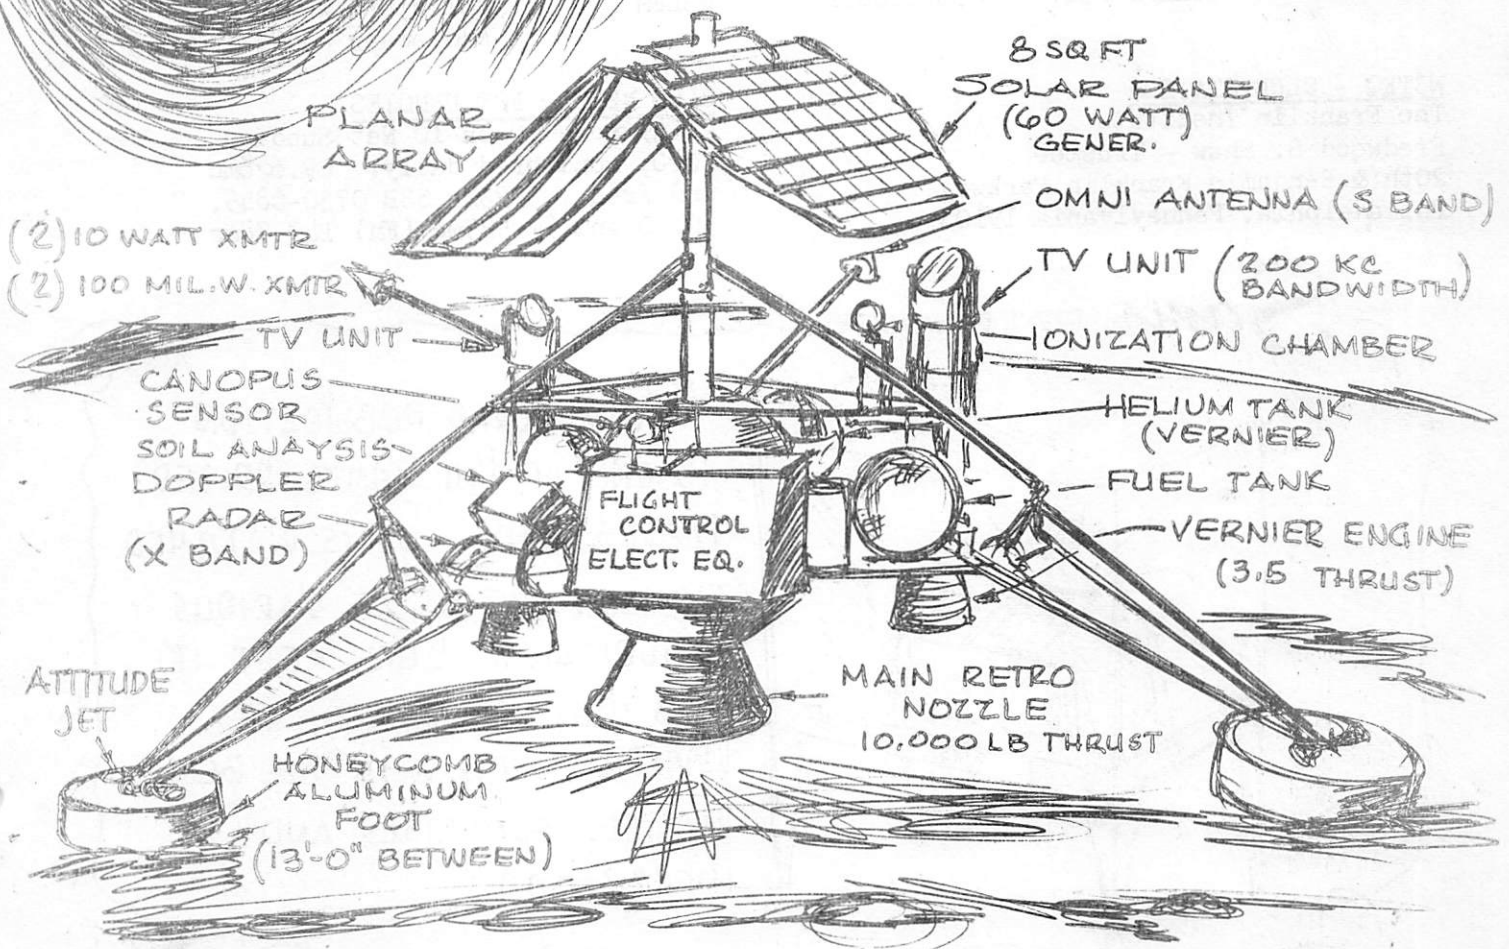 8 SQ FT
SOLAR PANEL
(60 WATT)
GENER.
PLANAR
ARRAY
OMNI ANTENNA (S BAND)
(2) 10 WATT XMTR
(2) 100 MIL.W. XMTR
TV UNIT (200 KC
BANDWIDTH)
TV UNIT
IONIZATION CHAMBER
CANOPUS
SENSOR
HELIUM TANK
(VERNIER)
SOIL ANAYSIS
DOPPLER
RADAR
(X BAND)
FUEL TANK
FLIGHT
CONTROL
ELECT. EQ.
VERNIER ENGINE
(3.5 THRUST)
ATTITUDE
JET
MAIN RETRO
NOZZLE
10,000 LB THRUST
HONEYCOMB
ALUMINUM
FOOT
(13'-0" BETWEEN)